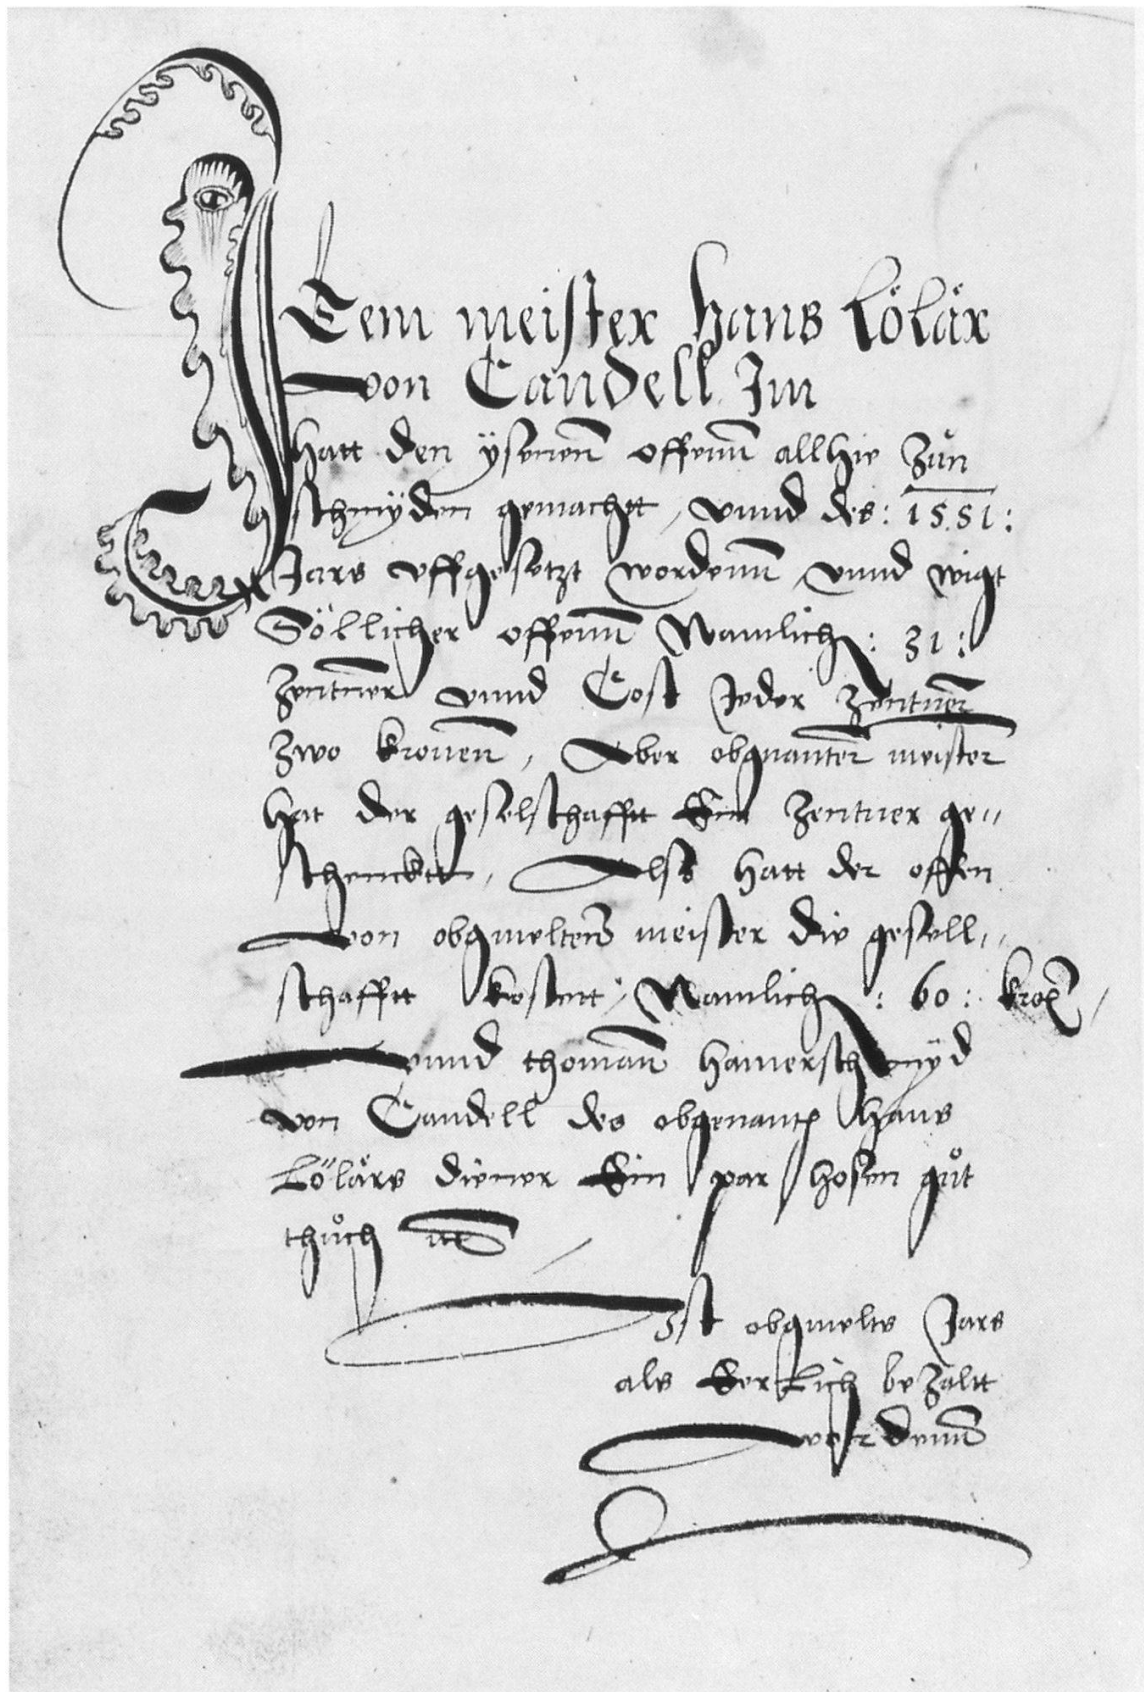 Item meister Hans Löläx
von Candell Im
hatt den ÿsenenn offenn allhie Zůn
schmÿden gemachtt, vnnd des: 1551:
Jars vffgesetzt wordenn, vnnd wigt
Söllicher offenn Namlich: 31:
Zentner vnnd Cost Jeder Zentner
Zwo kronen, Aber obgnanter meister
hat der geselschafft Ein Zentner ge=
schencktt, Also hatt der offen
von obgmeltem meister die gesell=
schafftt kostett, Namlich: 60: kro
vnnd thoman hamerschmÿd
von Candell des obgenantt Hans
Lölärs diener Ein par hosen gůt
thůch
Ist obgmelts Jars
als Eerlich bezaltt
wordenn